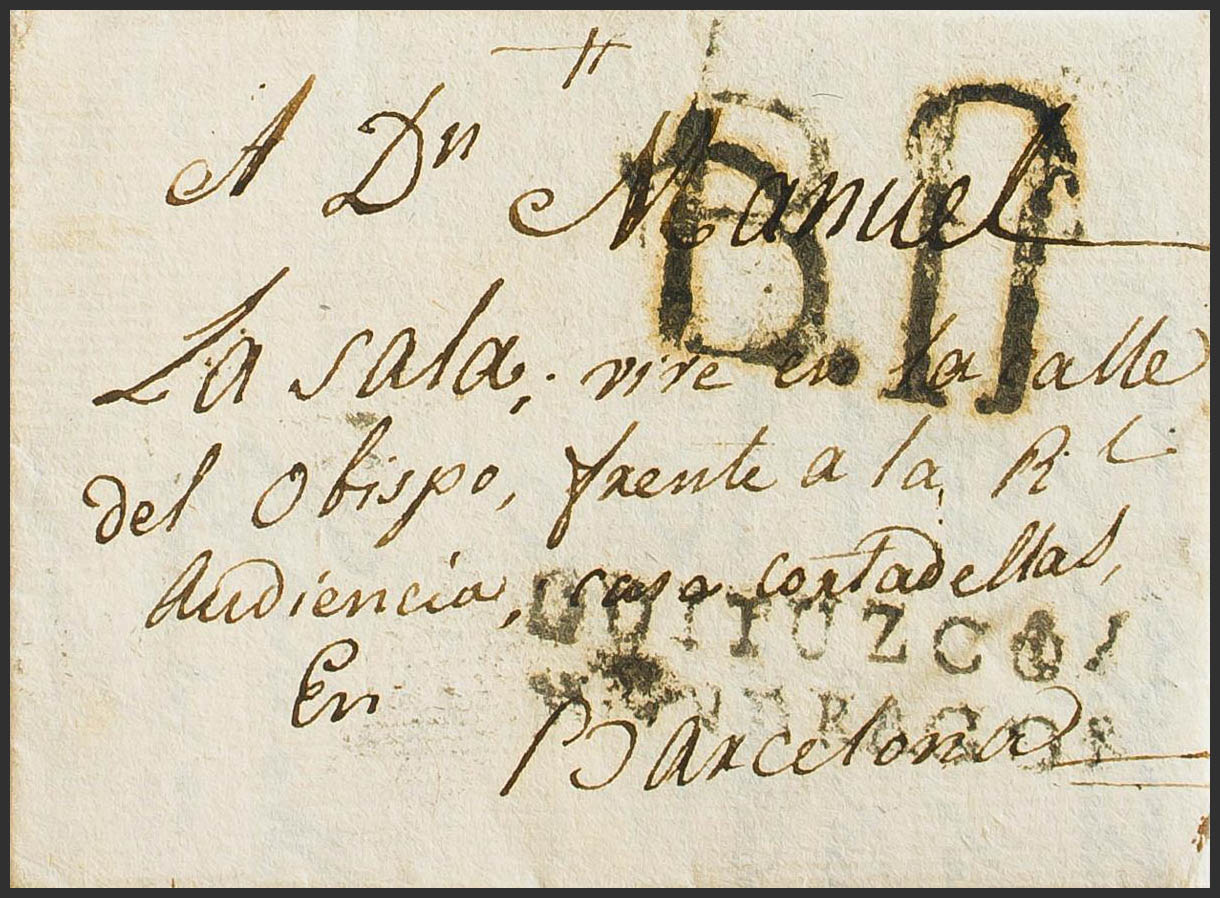 A Dn Manuel
La sala, vive en la calle
del Obispo, frente a la Rl
Audiencia, casa cortadellas,
En Barcelona
B.
GUIPUZCOA
MONDRAGON